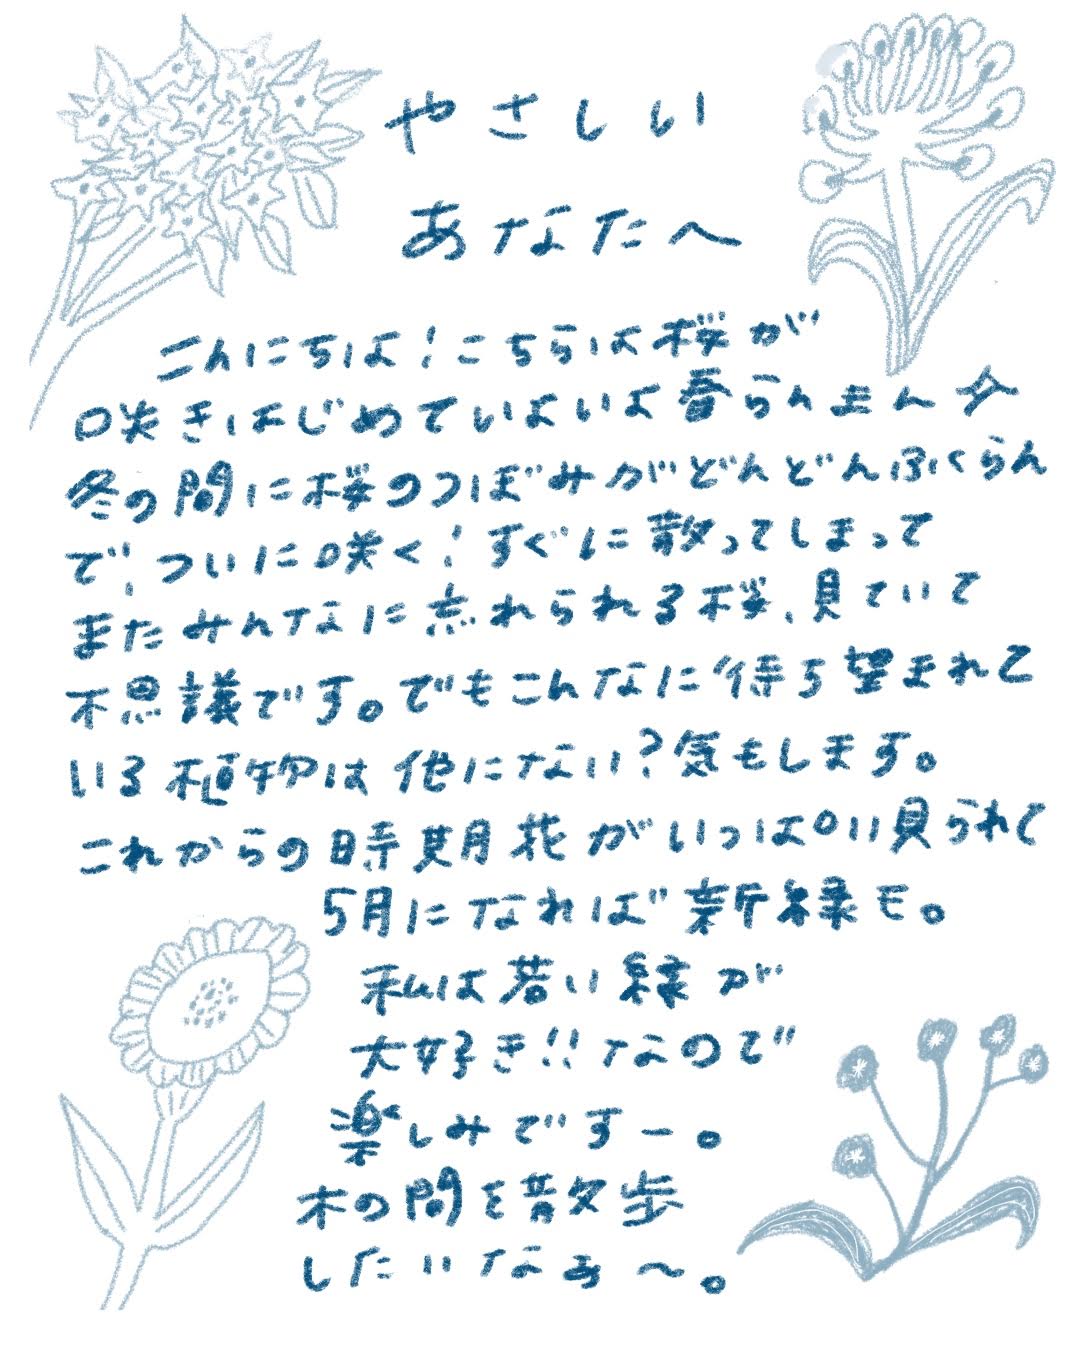 やさしい
あなたへ
こんにちは！こちらは桜が
咲きはじめていよいよ春らんまん☆
冬の間に桜のつぼみがどんどんふくらん
で、ついに咲く！すぐに散ってしまって
またみんなに忘れられる桜、見ていて
不思議です。でもこんなに待ち望まれて
いる植物は他にない？気もします。
これからの時期花がいっぱい見られて
5月になれば新緑も。
私は若い緑が
大好き!!なので
楽しみですー。
木の間を散歩
したいなぁ〜。